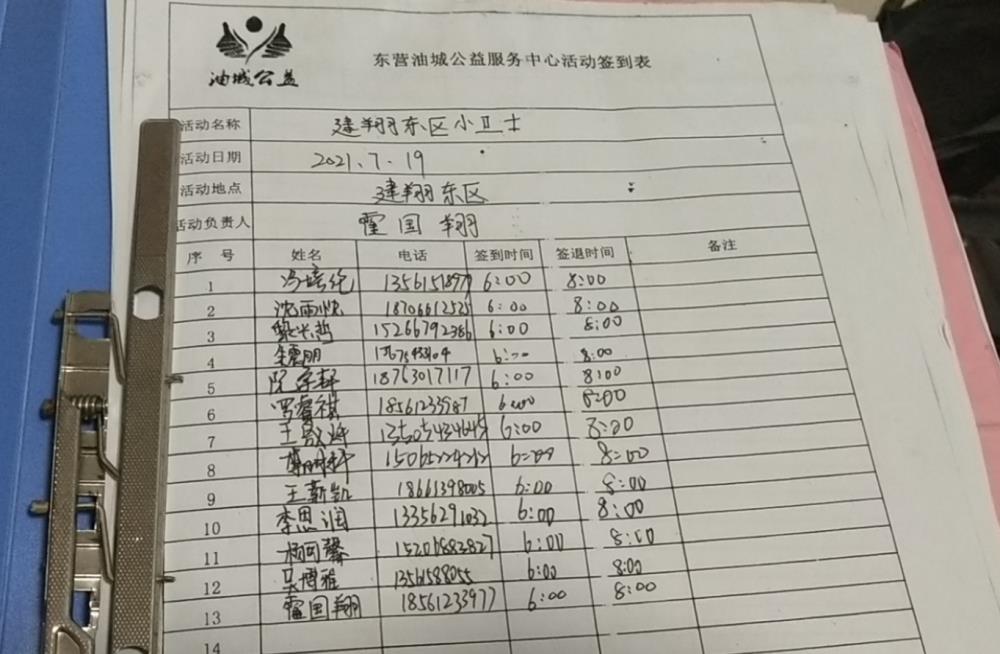 油城公益
东营油城公益服务中心活动签到表
活动名称 建翔东区小卫士
活动日期 2021.7.19
活动地点 建翔东区
活动负责人 霍国翔
序号 姓名 电话 签到时间 签退时间 备注
1 冯培伦 1356151897 6:00 8:00
2 沈雨欣 18706612525 6:00 8:00
3 15266792386 6:00 8:00
4 6:00 8:00
5 18763017117 6:00 8:00
6 罗睿祺 18561233987 6:00 8:00
7 6:00 8:00
8 6:00 8:00
9 王薪凯 18661398005 6:00 8:00
10 李思润 13356291032 6:00 8:00
11 15206882827 6:00 8:00
12 吴博雅 13561588055 6:00 8:00
13 霍国翔 18561233977 6:00 8:00
14